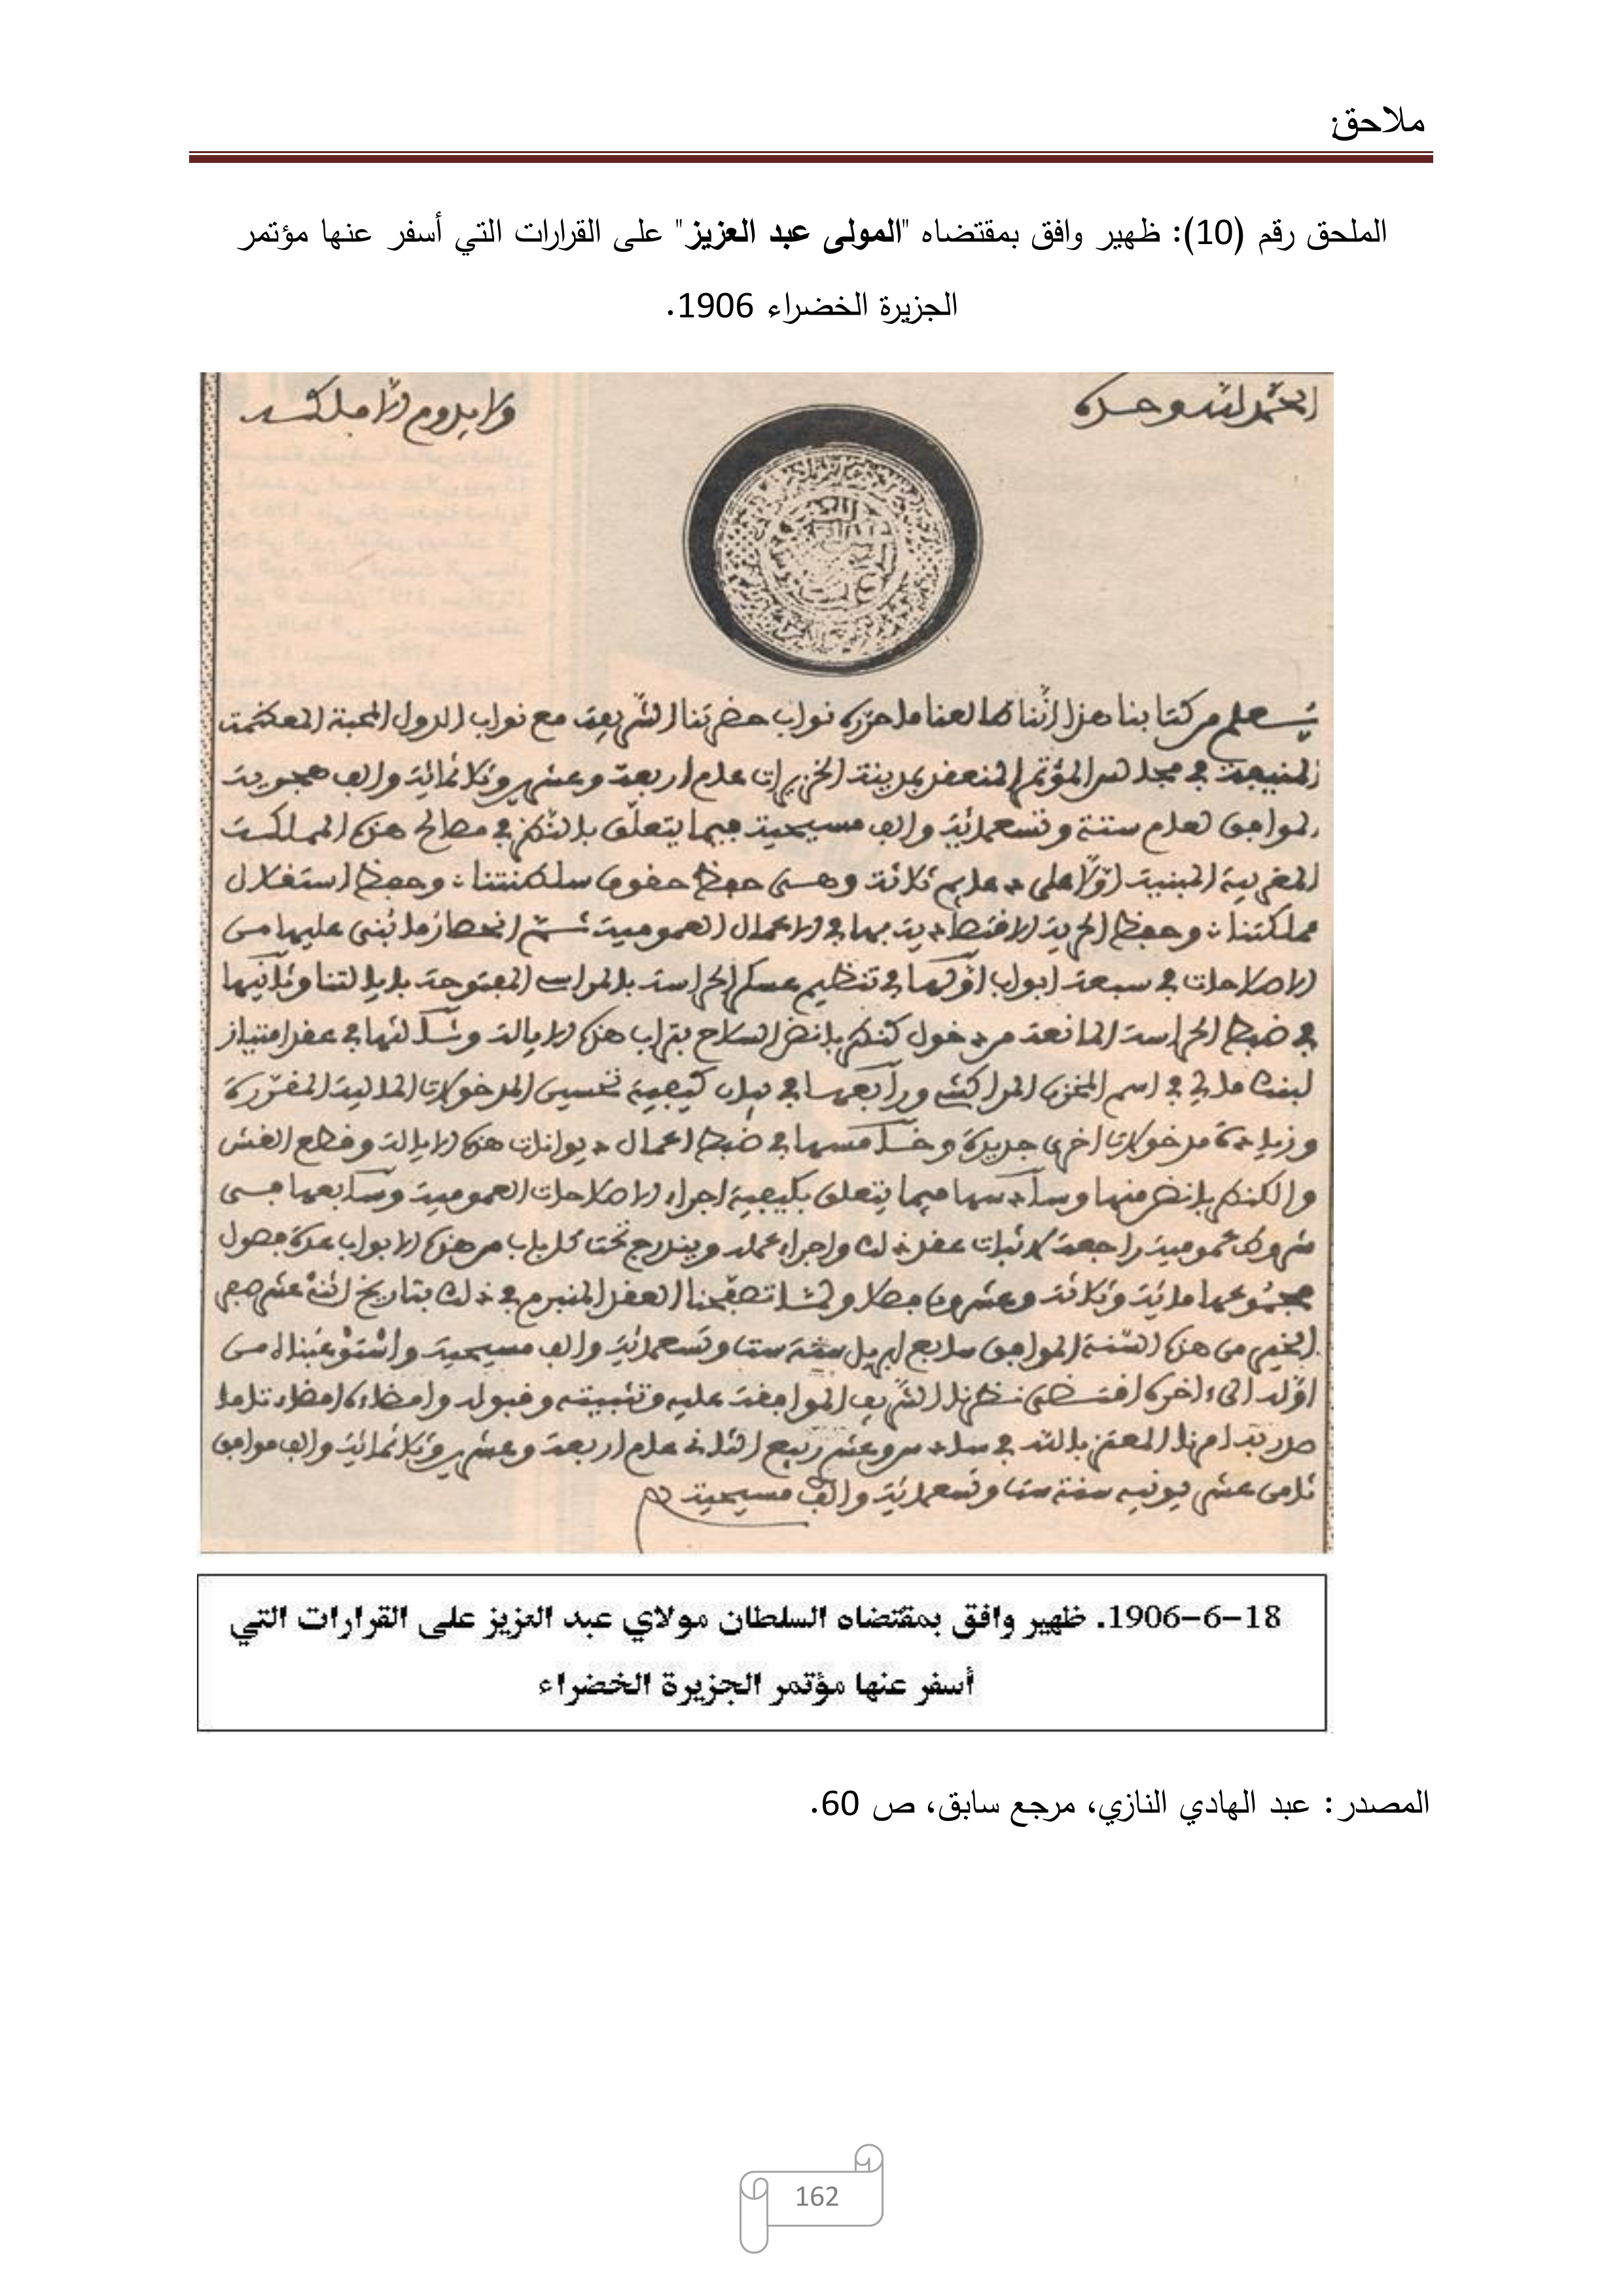 ملاحق:
الملحق رقم (10): ظهير وافق بمقتضاه "المولى عبد العزيز" على القرارات التي أسفر عنها مؤتمر
الجزيرة الخضراء 1906.
الحمد لله وحده
ولا يدوم إلا ملكه
يعلم من كتابنا هذا أننا طالعنا ما حرره نواب حضرتنا الشريفة مع نواب الدول المحبة المعظمة
المنيفة في مجلس المؤتمر المنعقد بمدينة الخزيرات عام أربعة وعشرين وثلاثمائة وألف هجرية
الموافق لعام ستة وتسعمائة وألف مسيحية فيما يتعلق بالنظر في مصالح هذه المملكة
المغربية المبنية أولا على دعايم ثلاثة وهي حفظ حقوق سلطنتنا وحفظ استقلال
مملكتنا وحفظ الحرية الاقتصادية بها في الأعمال العمومية ثم انحصار ما بني عليها من
الإصلاحات في سبعة أبواب أولها في تنظيم عسكر الحراسة بالمراسي المفتوحة بإيالتنا وثانيها
في ضبط الحراسة المانعة من دخول كنطربانض السلاح بتراب هذه الإيالة وثالثها في عقد امتياز
لبنك مالي في اسم المخزن المراكشي ورابعها في بيان كيفية تحسين المدخولات المالية المقررة
وزيادة مدخولات أخرى جديدة وخامسها في ضبط أعمال ديوانات هذه الإيالة وقطع الغش
والكنطربانض منها وسادسها فيما يتعلق بكيفية إجراء الإصلاحات العمومية وسابعها في
شروط عمومية راجعة لإثبات عقد ذلك وإجراء عمله ويندرج تحت كل باب من هذه الأبواب عدة فصول
مجموعها مائة وثلاثة وعشرون فصلا ولما تصفحنا العقد المنبرم في ذلك بتاريخ اثني عشر صفر
الخير من هذه السنة الموافق سابع ابريل سنة ست وتسعمائة وألف مسيحية واستوعبناه من
أوله إلى آخره اقتضى نظرنا الشريف الموافقة عليه وتثبيته وقبوله وإمضاءه إمضاء تاما
صدر به أمرنا المعتز بالله في سادس وعشر ربيع الثاني عام أربعة وعشرين وثلاثمائة وألف موافق
ثامن عشر يونيه سنة ست وتسعمائة وألف مسيحية
18-6-1906. ظهير وافق بمقتضاه السلطان مولاي عبد العزيز على القرارات التي
أسفر عنها مؤتمر الجزيرة الخضراء
المصدر: عبد الهادي النازي، مرجع سابق، ص 60.
162